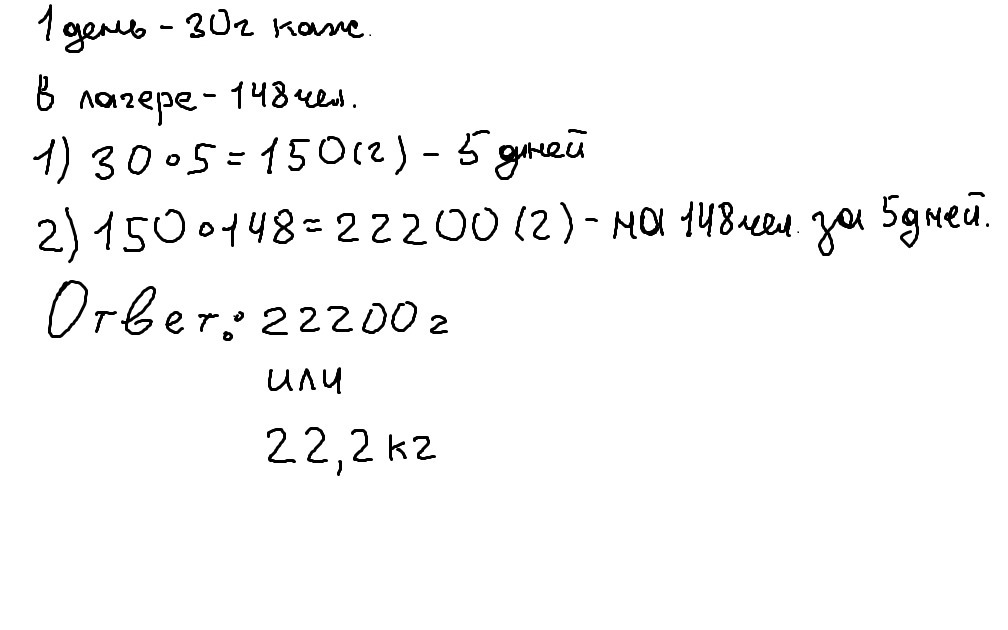 1 день - 30г каж.
В лагере - 148 чел.
1) 30∘5=150(г) - 5 дней
2) 150∘148=22200(г) - на 148 чел. за 5 дней.
Ответ: 22200 г
или
22,2 кг